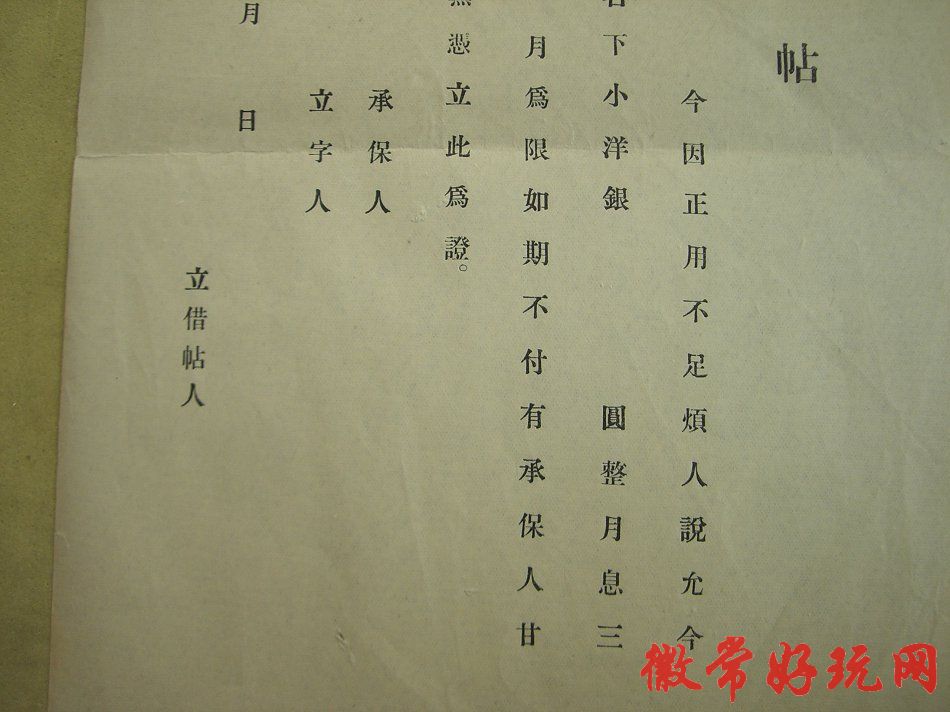 帖
今因正用不足煩人說允今
名下小洋銀 圓整月息三
月爲限如期不付有承保人甘
憑立此爲證。
承保人
立字人
月 日
立借帖人
徽常好玩网